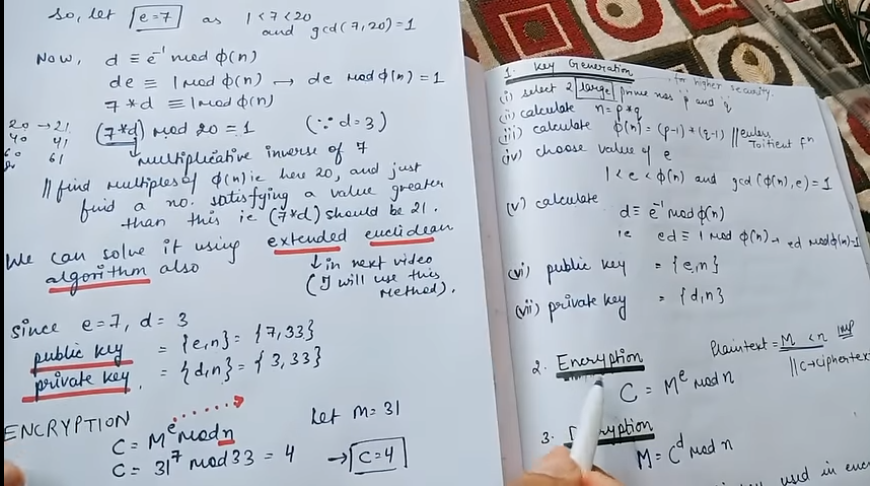 So, let e=7 as 1<7<20
and gcd(7,20)=1
Now, d ≡ e⁻¹ mod ϕ(n)
de ≡ 1 mod ϕ(n) → de mod ϕ(n) = 1
7 * d ≡ 1 mod ϕ(n)
20 → 21
40 41
60 61
(7*d) mod 20 = 1 (∵ d=3)
multiplicative inverse of 7
// find multiples of ϕ(n) ie here 20, and just
find a no. satisfying a value greater
than this ie (7*d) should be 21.
We can solve it using extended euclidean
algorithm also
↓ in next video
(I will use this
method).
since e=7, d=3
public key = {e,n} = {7,33}
private key = {d,n} = {3,33}
ENCRYPTION
Let M=31
C = Mᵉ mod n
C = 31⁷ mod 33 = 4 → C=4
1. Key Generation
for higher security.
(i) select 2 large prime nos 'p' and 'q'
(ii) calculate n=p*q
(iii) calculate ϕ(n)=(p-1)*(q-1) // eulers
Totient fⁿ
(iv) choose value of e
1<e<ϕ(n) and gcd(ϕ(n),e)=1
(v) calculate
d≡ e⁻¹ mod ϕ(n)
ie ed ≡ 1 mod ϕ(n) → ed mod ϕ(n)=1
(vi) public key = {e,n}
(vii) private key = {d,n}
2. Encryption
Plaintext = M < n imp
C = Mᵉ mod n
// C→ciphertext
3.
M = Cᵈ mod n
used in